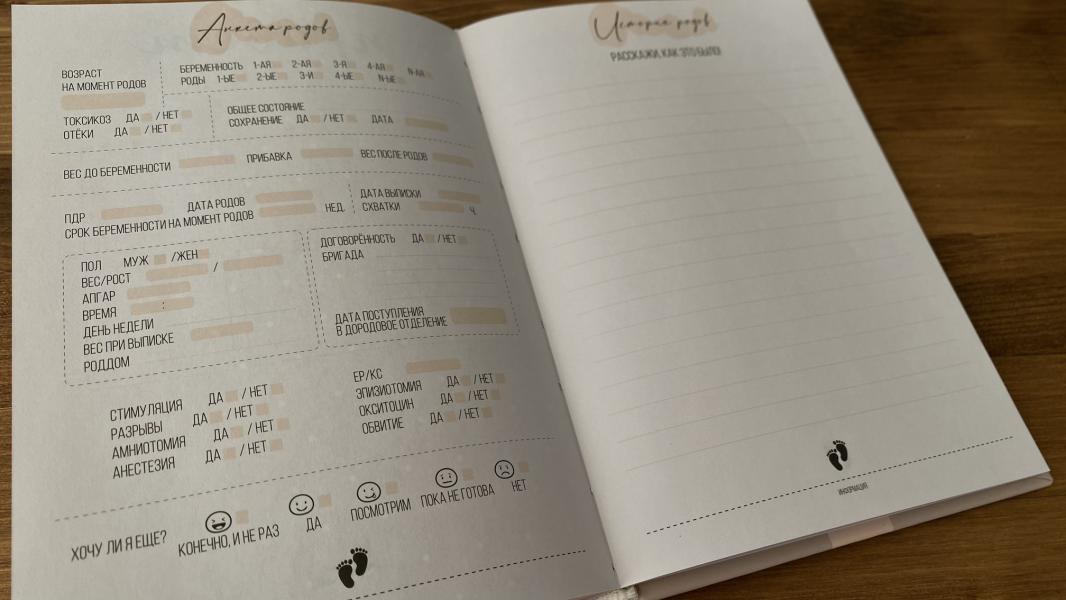 Анкета родов
ВОЗРАСТ
НА МОМЕНТ РОДОВ
БЕРЕМЕННОСТЬ 1-АЯ 2-АЯ 3-Я 4-АЯ N-АЯ
РОДЫ 1-ЫЕ 2-ЫЕ 3-И 4-ЫЕ N-ЫЕ
ТОКСИКОЗ ДА / НЕТ
ОТЁКИ ДА / НЕТ
ОБЩЕЕ СОСТОЯНИЕ
СОХРАНЕНИЕ ДА / НЕТ ДАТА
ВЕС ДО БЕРЕМЕННОСТИ ПРИБАВКА ВЕС ПОСЛЕ РОДОВ
ПДР ДАТА РОДОВ
СРОК БЕРЕМЕННОСТИ НА МОМЕНТ РОДОВ НЕД.
ДАТА ВЫПИСКИ
СХВАТКИ Ч.
ПОЛ МУЖ /ЖЕН
ВЕС/РОСТ /
АПГАР
ВРЕМЯ :
ДЕНЬ НЕДЕЛИ
ВЕС ПРИ ВЫПИСКЕ
РОДДОМ
ДОГОВОРЁННОСТЬ ДА / НЕТ
БРИГАДА
ДАТА ПОСТУПЛЕНИЯ
В ДОРОДОВОЕ ОТДЕЛЕНИЕ
СТИМУЛЯЦИЯ ДА / НЕТ
РАЗРЫВЫ ДА / НЕТ
АМНИОТОМИЯ ДА / НЕТ
АНЕСТЕЗИЯ ДА / НЕТ
ЕР/КС
ЭПИЗИОТОМИЯ ДА / НЕТ
ОКСИТОЦИН ДА / НЕТ
ОБВИТИЕ ДА / НЕТ
ХОЧУ ЛИ Я ЕЩЕ? КОНЕЧНО, И НЕ РАЗ ДА ПОСМОТРИМ ПОКА НЕ ГОТОВА НЕТ
История родов
РАССКАЖИ, КАК ЭТО БЫЛО!
ИНФОРМАЦИЯ